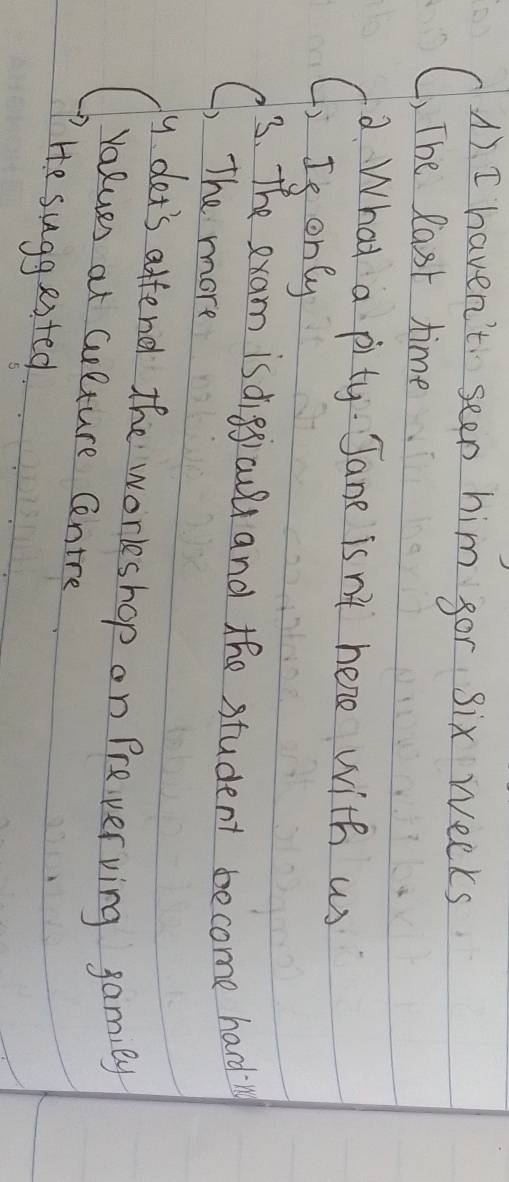 1) I haven't seen him for six weeks
(→) The last time
2. What a pity. Jane isn't here with us
(→) If only
3. The exam is difficult and the student become hard-w
(→) The more
4. Let's attend the workshop on Preverving family
values at culture Centre
(→) He suggested